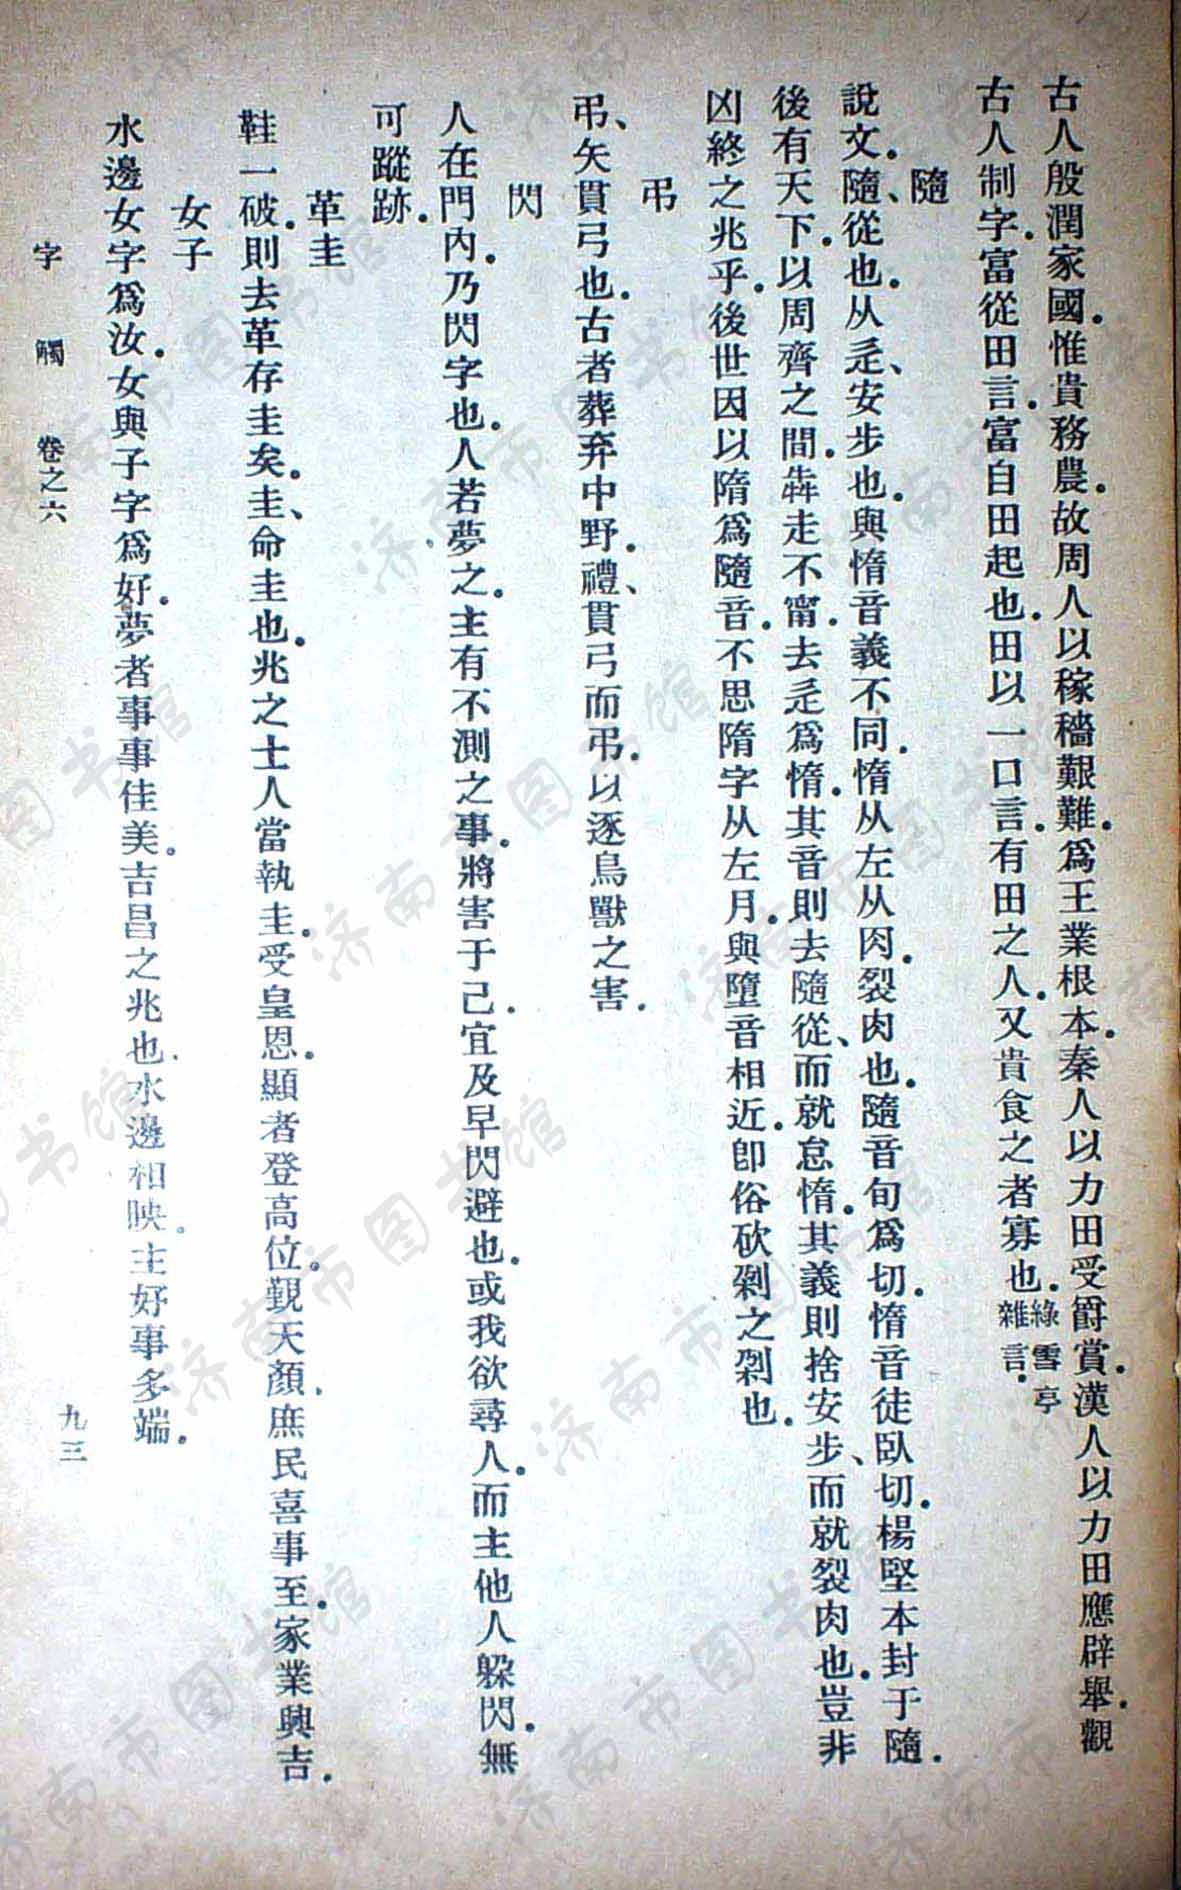 古人殷潤家國。惟貴務農。故周人以稼穡艱難。爲王業根本。秦人以力田受爵賞。漢人以力田應辟舉。觀
古人制字。富從田言。富自田起也。田以一口言。有田之人。又貴食之者寡也。綠雪亭雜言。
隨
說文。隨、從也。从辵、安步也。與惰音義不同。惰从左从肉。裂肉也。隨音旬爲切。惰音徒臥切。楊堅本封于隨。
後有天下。以周齊之間。犇走不甯。去辵爲惰。其音則去隨從、而就怠惰。其義則捨安步、而就裂肉也。豈非
凶終之兆乎。後世因以隋爲隨音。不思隋字从左月。與墮音相近。卽俗砍剁之剁也。
弔
弔、矢貫弓也。古者葬弃中野。禮、貫弓而弔。以逐鳥獸之害。
閃
人在門內。乃閃字也。人若夢之。主有不測之事。將害于己。宜及早閃避也。或我欲尋人。而主他人躱閃。無
可蹤跡。
革圭
鞋一破。則去革存圭矣。圭、命圭也。兆之士人當執圭。受皇恩。顯者登高位。覲天顏。庶民喜事至。家業興吉。
女子
水邊女字爲汝。女與子字爲好。夢者事事佳美。吉昌之兆也。水邊相映。主好事多端。
字觸 卷之六 九三